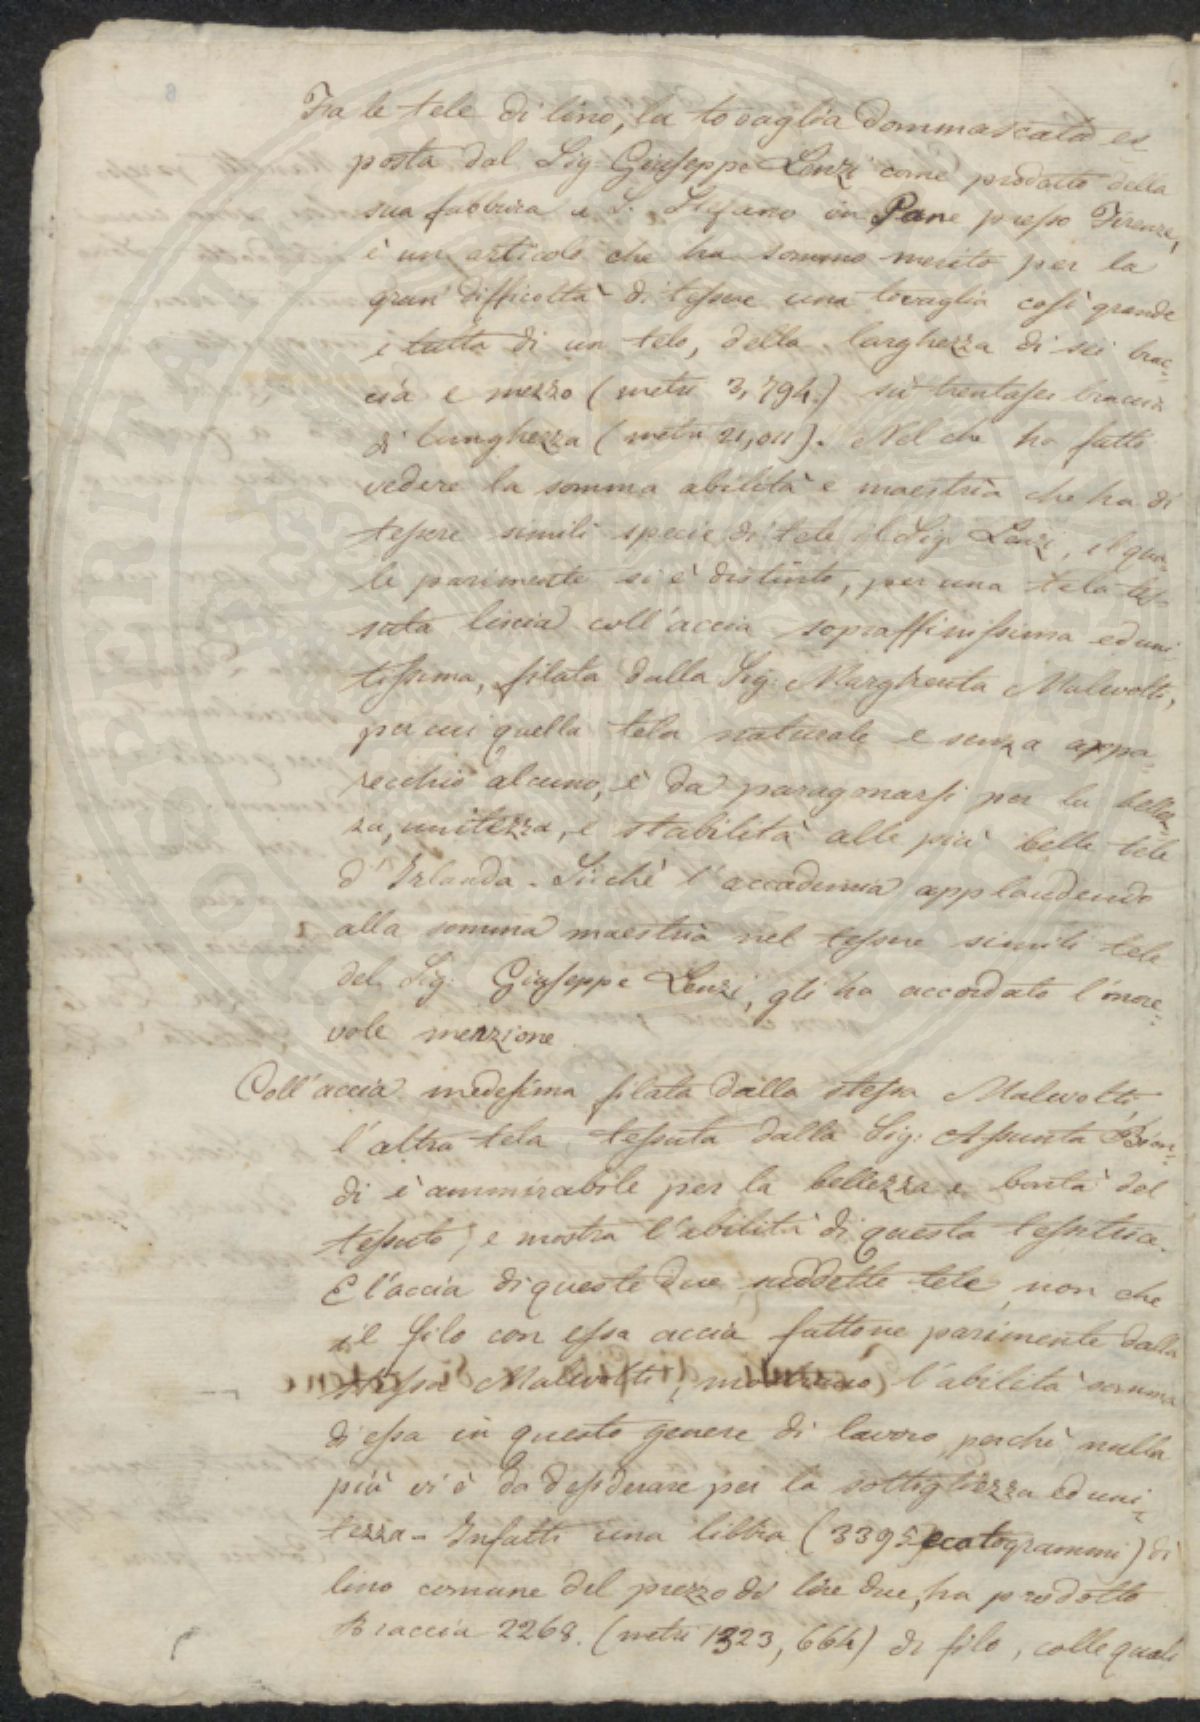 Fra le tele di lino, la tovaglia dommascata es
posta dal Sig. Giuseppe Lenzi come prodotto della
sua fabbrica a S. Stefano in Pane presso Firenze,
è un articolo che ha sommo merito per la
gran difficoltà di tessere una tovaglia così grande
e tutta di un telo, della larghezza di sei brac=
cia e mezzo (metri 3,794.) su trentasei braccia
di lunghezza (metri 21,011). Nel che ha fatto
vedere la somma abilità e maestria che ha di
tessere simili specie di tele il Sig. Lenzi, il qua=
le parimente si è distinto, per una tela tes=
suta liscia coll'accia sopraffinissima ed uni=
tissima, filata dalla Sig. Margherita Malevolti,
per cui quella tela naturale e senza appa=
recchio alcuno, è da paragonarsi per la bellez=
za, unitezza, e stabilità alle più belle tele
d'Irlanda. Sicchè l'accademia applaudendo
alla somma maestria nel tessere simili tele
del Sig. Giuseppe Lenzi, gli ha accordato l'onore=
vole menzione
Coll'accia medesima filata dalla stessa Malevolti,
l'altra tela tessuta dalla Sig: Assunta Bion=
di è ammirabile per la bellezza e bontà del
tessuto, e mostra l'abilità di questa tessitrice.
E l'accia di queste due suddette tele, non che
il filo con essa accia fattone parimente dalla
stessa Malevolti, mostrano l'abilità somma
di essa in questo genere di lavoro, perchè nulla
più vi è da desiderare per la sottigliezza ed uni=
tezza. Infatti una libbra (3395 ecatogrammi) di
lino comune del prezzo di lire due, ha prodotto
Braccia 2268. (metri 1323,664) di filo, colle quali